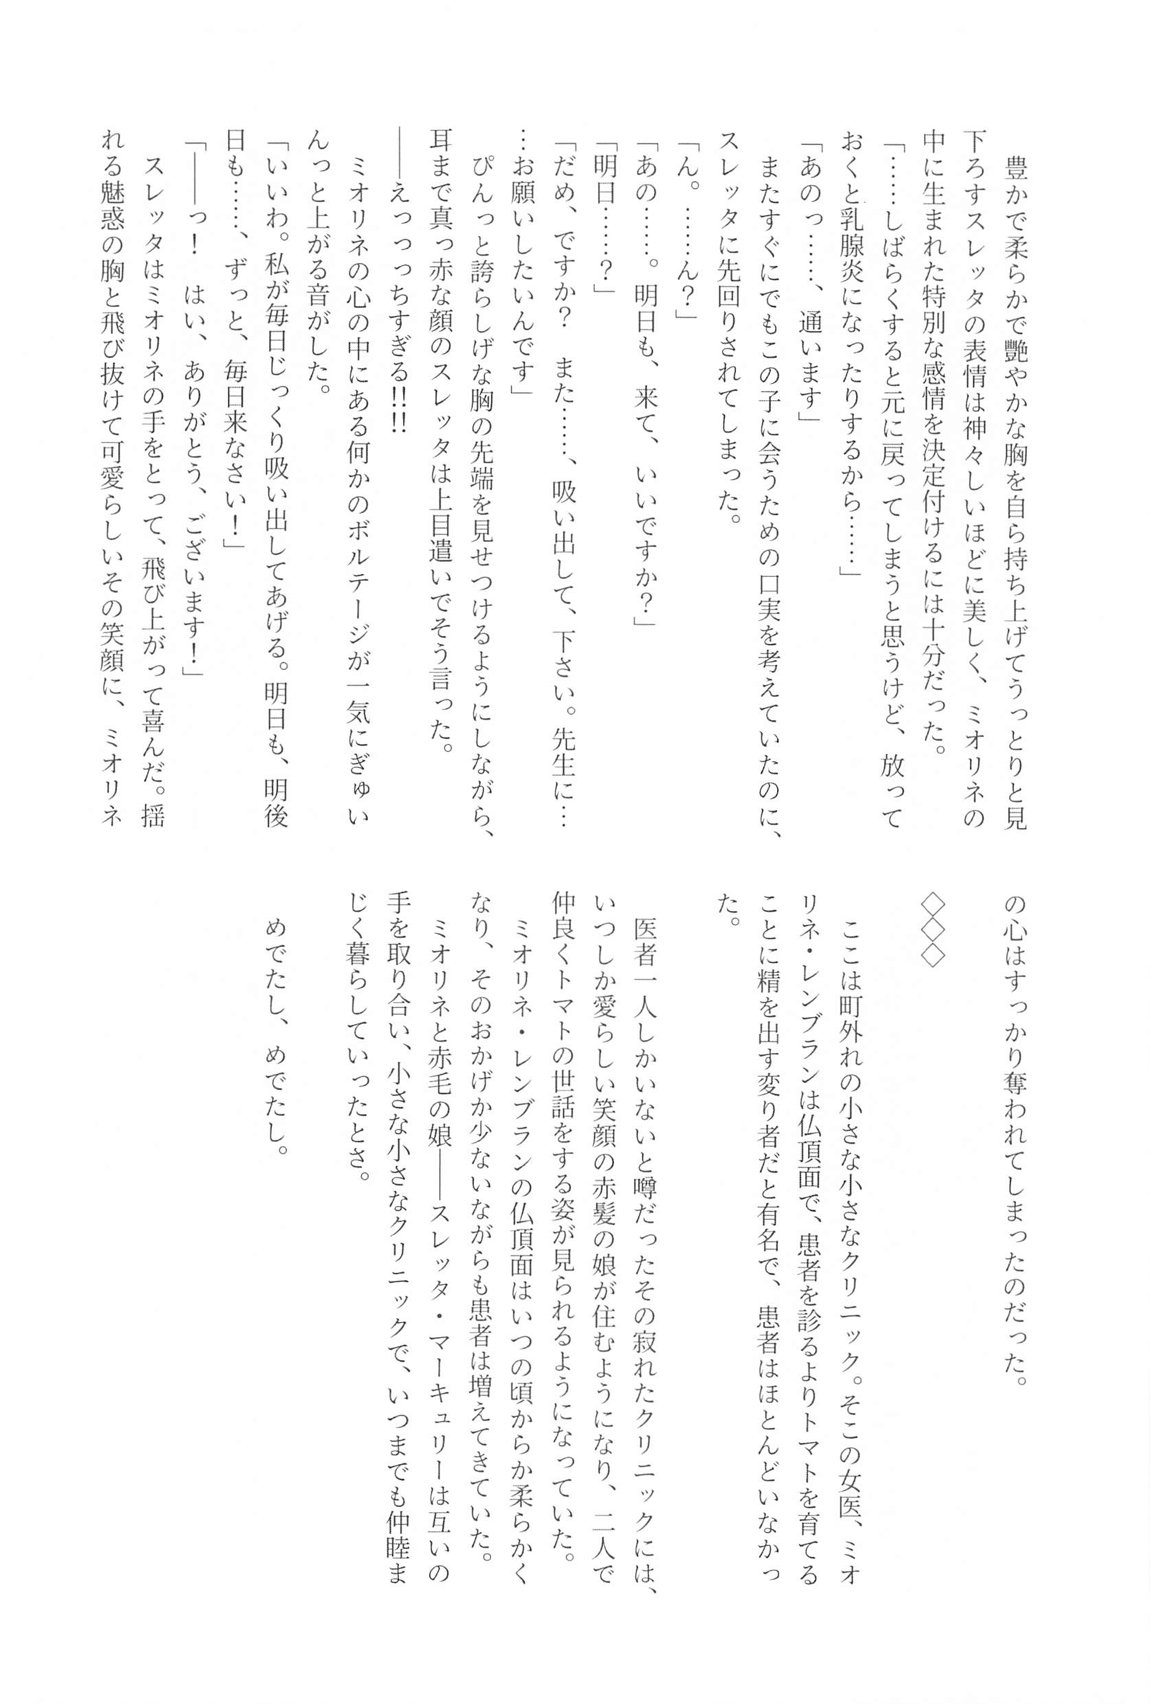 豊かで柔らかで艶やかな胸を自ら持ち上げてうっとりと見
下ろすスレッタの表情は神々しいほどに美しく、ミオリネの
中に生まれた特別な感情を決定付けるには十分だった。
「……しばらくすると元に戻ってしまうと思うけど、放って
おくと乳腺炎になったりするから……」
「あのっ……、通います」
またすぐにでもこの子に会うための口実を考えていたのに、
スレッタに先回りされてしまった。
「ん。……ん?」
「あの……。明日も、来て、いいですか?」
「明日……?」
「だめ、ですか? また……、吸い出して、下さい。先生に…
…お願いしたいんです」
ぴんっと誇らしげな胸の先端を見せつけるようにしながら、
耳まで真っ赤な顔のスレッタは上目遣いでそう言った。
――えっっっちすぎる!!!!
ミオリネの心の中にある何かのボルテージが一気にぎゅい
んっと上がる音がした。
「いいわ。私が毎日じっくり吸い出してあげる。明日も、明後
日も……、ずっと、毎日来なさい!」
「――っ! はい、ありがとう、ございます!」
スレッタはミオリネの手をとって、飛び上がって喜んだ。揺
れる魅惑の胸と飛び抜けて可愛らしいその笑顔に、ミオリネ
の心はすっかり奪われてしまったのだった。
◇◇◇
ここは町外れの小さな小さなクリニック。そこの女医、ミオ
リネ・レンブランは仏頂面で、患者を診るよりトマトを育てる
ことに精を出す変り者だと有名で、患者はほとんどいなかっ
た。
医者一人しかいないと噂だったその寂れたクリニックには、
いつしか愛らしい笑顔の赤髪の娘が住むようになり、二人で
仲良くトマトの世話をする姿が見られるようになっていた。
ミオリネ・レンブランの仏頂面はいつの頃からか柔らかく
なり、そのおかげか少ないながらも患者は増えてきていた。
ミオリネと赤毛の娘――スレッタ・マーキュリーは互いの
手を取り合い、小さな小さなクリニックで、いつまでも仲睦ま
じく暮らしていったとさ。
めでたし、めでたし。